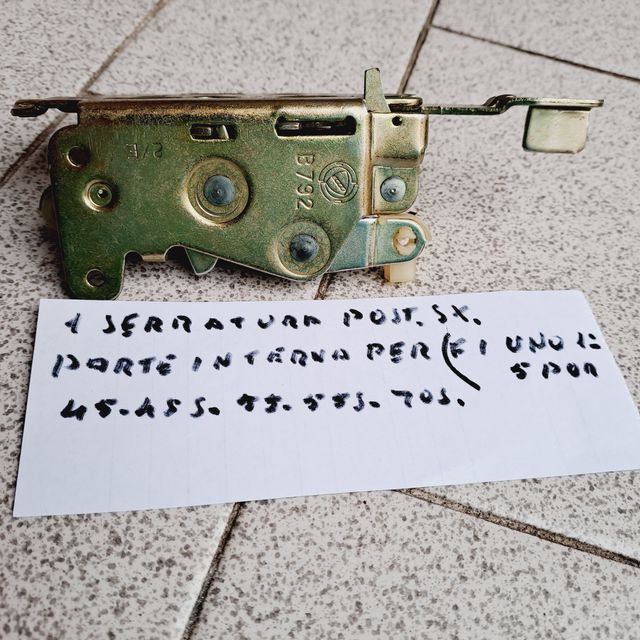 2/E
B792
1 SERRATURA POST. SX.
PORTE INTERNA PER (FI UNO 1ª
5 POR
45. 45S. 55. 55S. 70S.